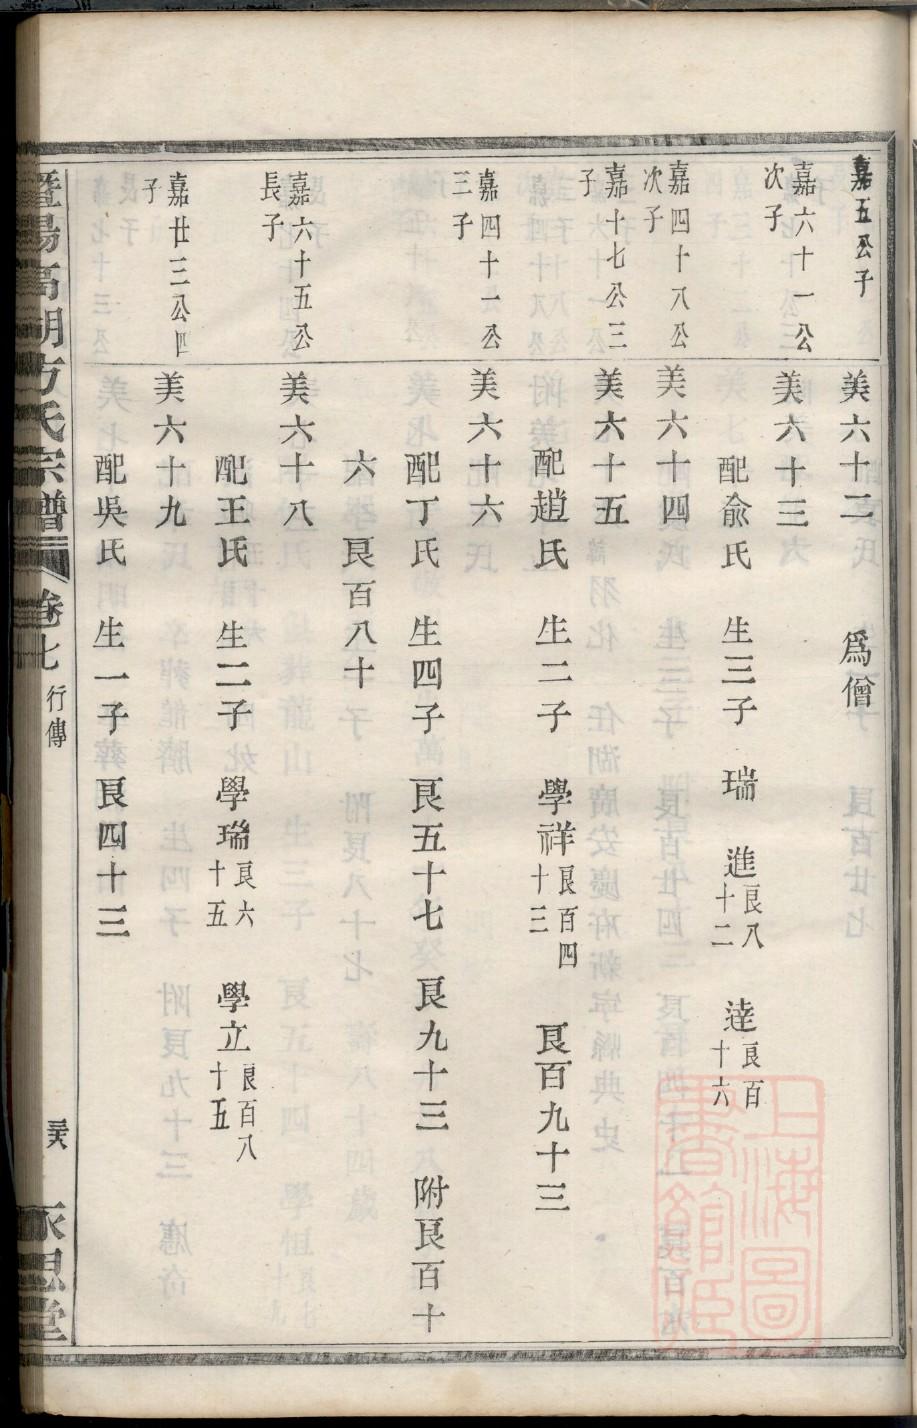 嘉五公子
美六十二 爲僧
嘉六十一公
次子
美六十三
配俞氏 生三子 瑞 進良八十二 達良百十六
嘉四十八公
次子
美六十四
嘉十七公三
子
美六十五
配趙氏 生二子 學祥良百四十三 良百九十三
嘉四十一公
三子
美六十六
配丁氏 生四子 良五十七 良九十三 附良百十
六 良百八十
嘉六十五公
長子
美六十八
配王氏 生二子 學瑞良六十五 學立良百八十五
嘉廿三公四
子
美六十九
配吳氏 生一子 良四十三
暨陽高湖方氏宗譜 卷七 行傳 永思堂
上海圖書館藏